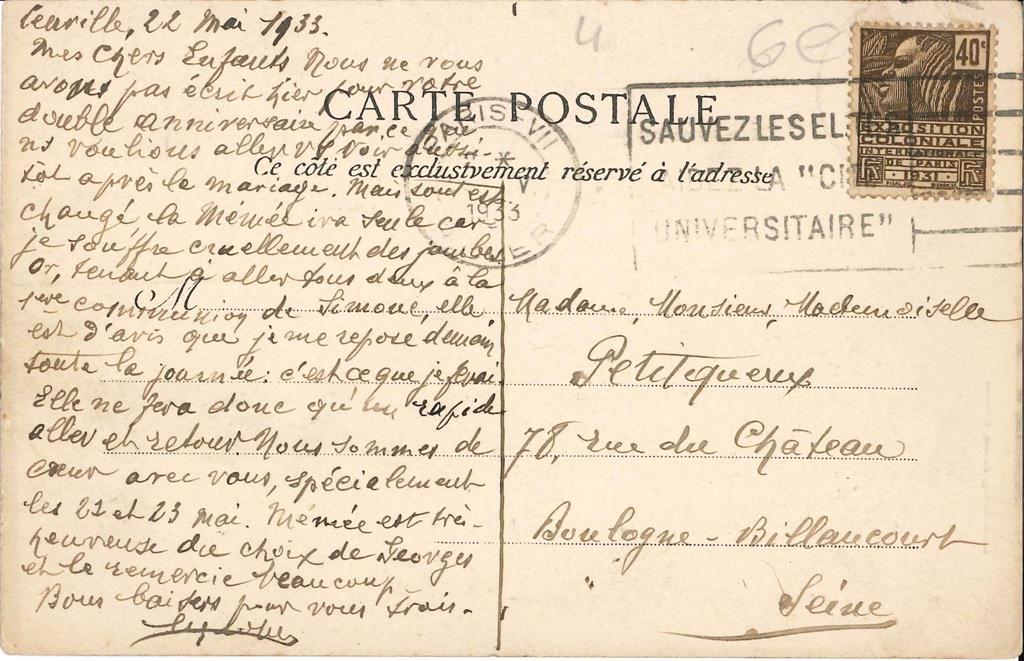 22 Mai 1933.
Mes Chers Enfants Nous ne vous
avons pas écrit hier pour votre
double anniversaire parce que
ns voulions aller vs voir aussi-
tôt après le mariage. Mais tout est
changé la Mémée ira seule car
je souffre cruellement des jambes
Or, tenant à aller tous deux à la
1ère communion de Simone, elle
est d'avis que je me repose demain
toute la journée: c'est ce que je ferai.
Elle ne fera donc qu'un rapide
aller et retour. Nous sommes de
cœur avec vous, spécialement
les 22 et 23 mai. Mémée est très
heureuse du choix de Georges
et le remercie beaucoup
Bons baisers pour vous trois-
CARTE POSTALE
Ce côté est exclusivement réservé à l'adresse
M
4
6€
PARIS VII
1933
SAUVEZ LES
LA "CI
UNIVERSITAIRE"
40c
POSTES
EXPOSITION
COLONIALE
INTERNATIONALE
DE PARIS
1931
Madame, Monsieur, Mademoiselle
Petitqueux
78, rue du Château
Boulogne-Billancourt
Seine